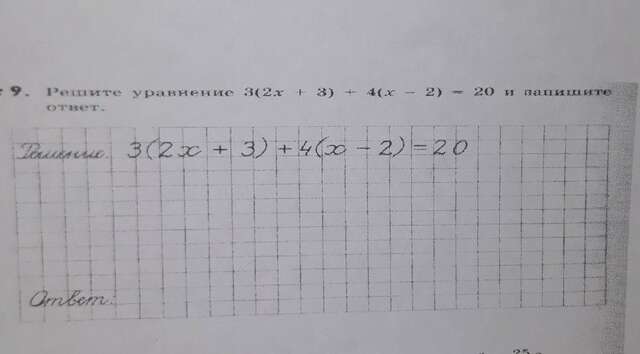 9. Решите уравнение 3(2x + 3) + 4(x − 2) = 20 и запишите
ответ.
Решение. 3(2x + 3) + 4(x − 2) = 20
Ответ:
25